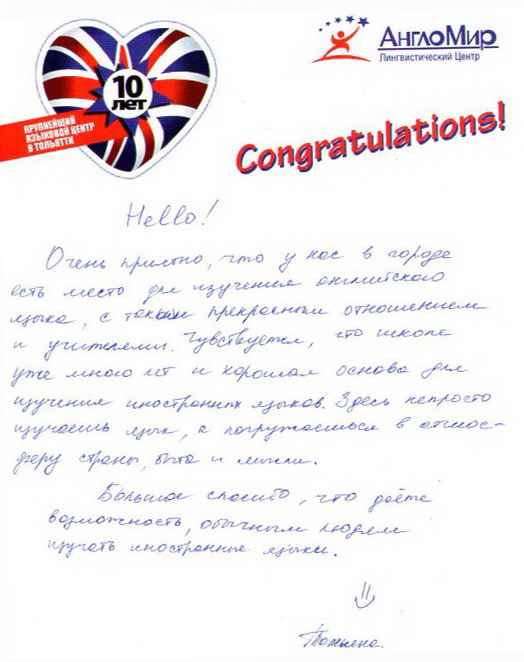 10
ЛЕТ
КРУПНЕЙШИЙ
ЯЗЫКОВОЙ ЦЕНТР
В ТОЛЬЯТТИ
АнглоМир
Лингвистический Центр
Congratulations!
Hello!
Очень приятно, что у нас в городе
есть место для изучения английского
языка, с таким прекрасным отношением
и учителями. Чувствуется, что школе
уже много лет и хорошая основа для
изучения иностранных языков. Здесь непросто
изучаешь язык, а погружаешься в атмос-
феру страны, быта и мысли.
Большое спасибо, что даёте
возможность, обычным людям
изучать иностранные языки.
Татьяна.